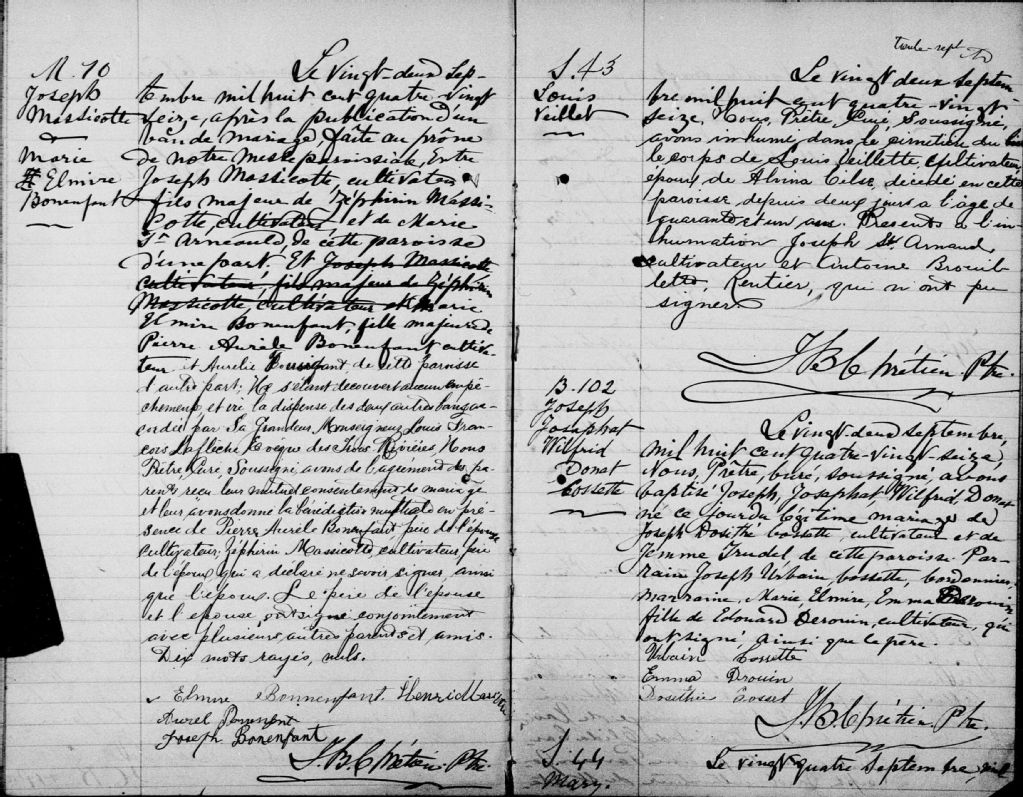 M. 10
Joseph
Massicotte
&
Marie
Elmire
Bonenfant
Le vingt-deux Sep-
tembre mil huit cent quatre-vingt
seize, après la publication d'un
ban de mariage, faite au prône
de notre messe paroissiale, entre
Joseph Massicotte, cultivateur
fils majeur de Zéphirin Massi-
cotte, cultivateur, et de Marie
St Arnauld, de cette paroisse
d'une part; Et Joseph Massicotte
cultivateur, fils majeur de Zéphirin
Massicotte, cultivateur et Marie
Elmire Bonenfant, fille majeure de
Pierre Aurèle Bonenfant cultiva-
teur et Aurélie Bonenfant de cette paroisse
d'autre part; Ne s'étant découvert aucun empê-
chement et vu la dispense des deux autres bans ac-
cordée par Sa Grandeur Monseigneur Louis Fran-
çois Laflèche Evêque des Trois Rivières, Nous
Prêtre, Curé, Soussigné, avons de l'agrément des pa-
rents, reçu leur mutuel consentement de mariage
et leur avons donné la bénédiction nuptiale en pré-
sence de Pierre Aurèle Bonenfant père de l'épouse
cultivateur, Zéphirin Massicotte, cultivateur, père
de l'époux qui a déclaré ne savoir signer, ainsi
que l'époux. Le père de l'épouse
et l'épouse, ont signé conjointement
avec plusieurs autres parents et amis.
Dix mots rayés, nuls.
Elmire Bonnenfant Henri
Aurel Bonnenfant
Joseph Bonenfant
J.B. Chrétien Ptre.
trente-sept
S. 43
Louis
Veillet
Le vingt deux septem
bre mil huit cent quatre-vingt-
seize, Nous, Prêtre, Curé, Soussigné,
avons inhumé, dans le cimetière du lieu
le corps de Louis Veillette, cultivateur,
époux de Alvina, décédé en cette
paroisse, depuis deux jours a l'âge de
quarante et un ans. Présents à l'in-
humation Joseph St Arnaud,
cultivateur et Antoine Brouil
lette, Rentier, qui n'ont pu
signer
J.B. Chrétien. Ptre.
B. 102
Joseph
Josaphat
Wilfrid
Donat
Cossette
Le vingt-deux septembre,
mil huit cent quatre-vingt-seize,
Nous, Prêtre, curé, soussigné, avons
baptisé Joseph, Josaphat Wilfrid, Donat
né ce jour du légitime mariage de
Joseph Dosithé Cossette, cultivateur et de
Jemme Trudel de cette paroisse. Par-
rain Joseph Urbain, Cossette, cordonnier,
marraine, Marie Elmire, Emma Derouin
fille de Edouard Derouin, cultivateur, qui
ont signé, ainsi que le père.
Urbain Cossette
Emma Drouin
Dosithée Cosset
J.B. Chrétien. Ptre.
S. 44
Mary.
Le vingt-quatre Septembre, mil